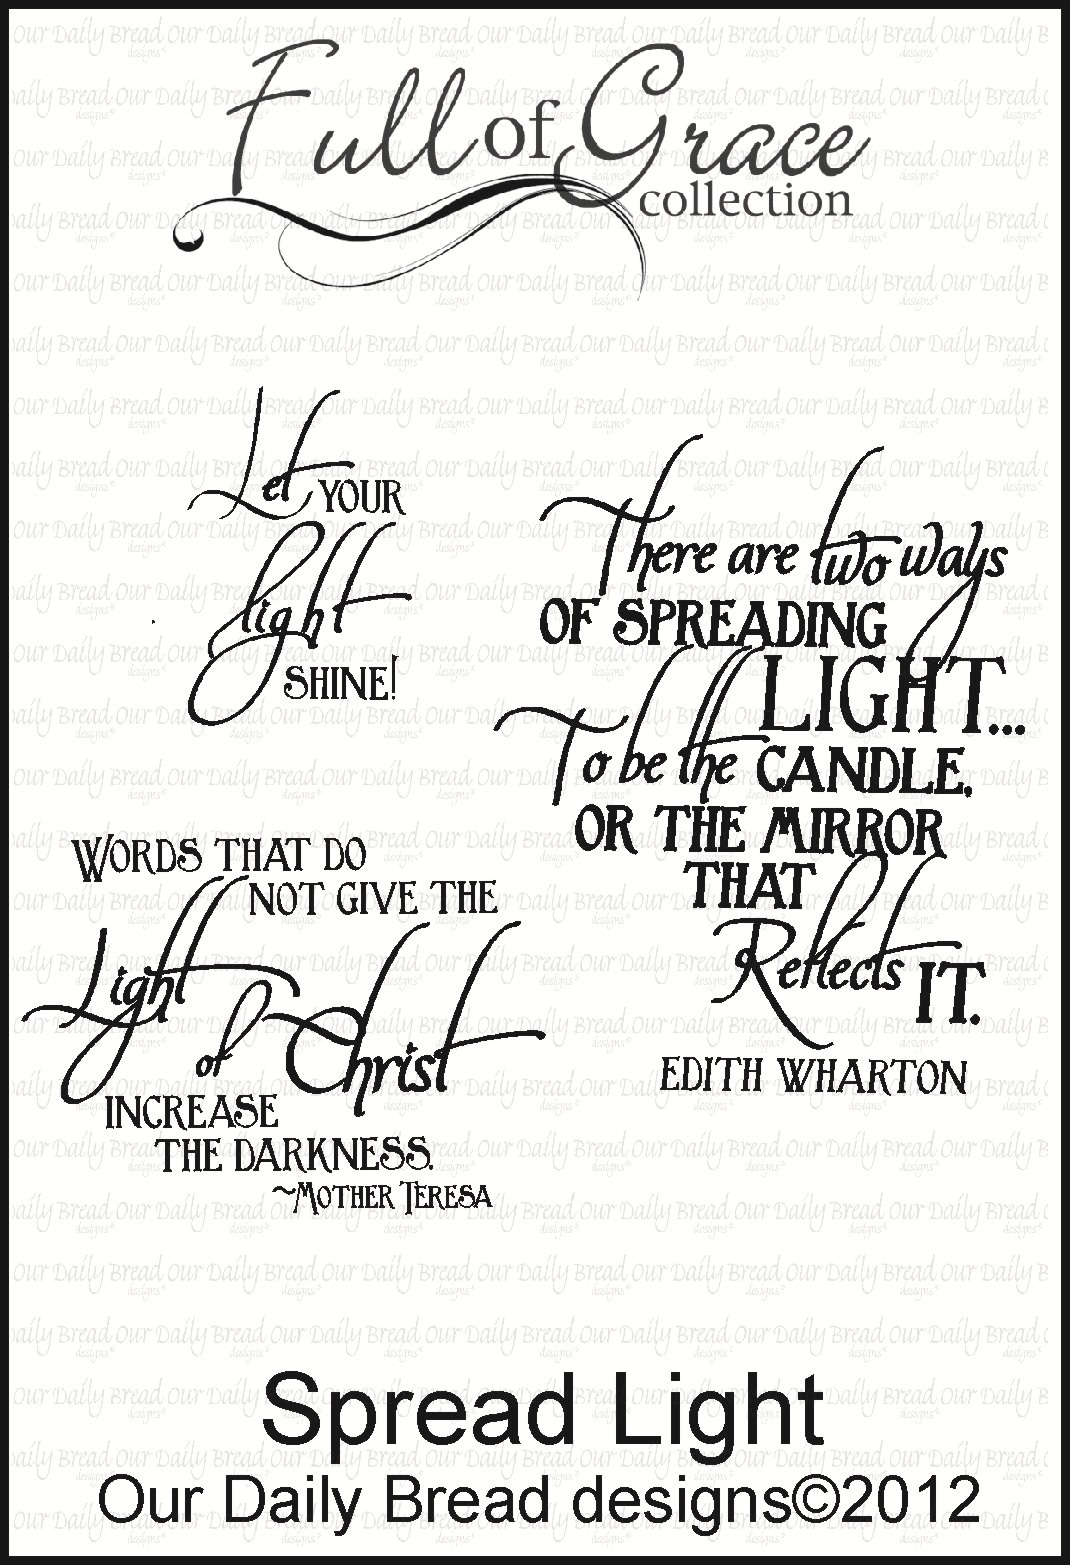 Full of Grace
collection
Let YOUR
light
SHINE!
There are two ways
OF SPREADING
LIGHT...
To be the CANDLE,
OR THE MIRROR
THAT
Reflects IT.
EDITH WHARTON
WORDS THAT DO
NOT GIVE THE
Light
of Christ
INCREASE
THE DARKNESS.
~MOTHER TERESA
Spread Light
Our Daily Bread designs©2012